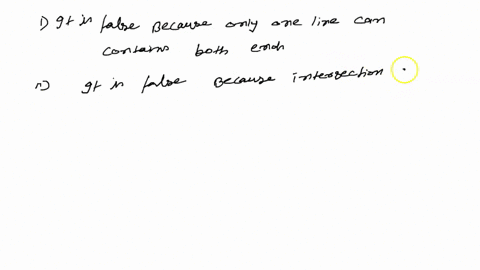 1) It is false Because only one line can
contains both ends
2) It is false Because intersection